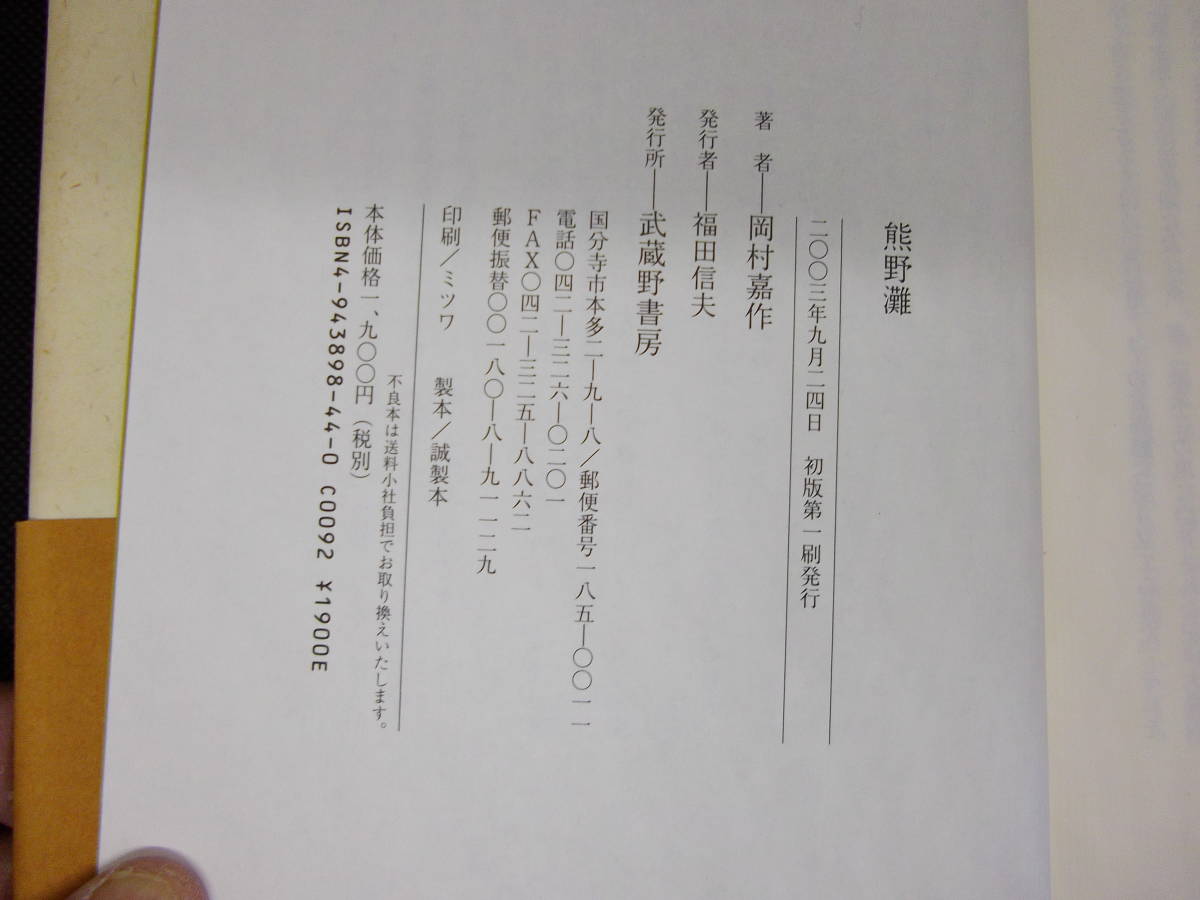 熊野灘
二〇〇三年九月二四日　初版第一刷発行
著　者―岡村嘉作
発行者―福田信夫
発行所―武蔵野書房
国分寺市本多二―九―八／郵便番号一八五―〇〇一一
電話〇四二―三二六―〇二〇一
FAX〇四二―三二五―八八六二
郵便振替〇〇一八〇―八―九一一二九
印刷／ミツワ　製本／誠製本
不良本は送料小社負担でお取り換えいたします。
本体価格一、九〇〇円（税別）
ISBN4-943898-44-0 C0092 ¥1900E